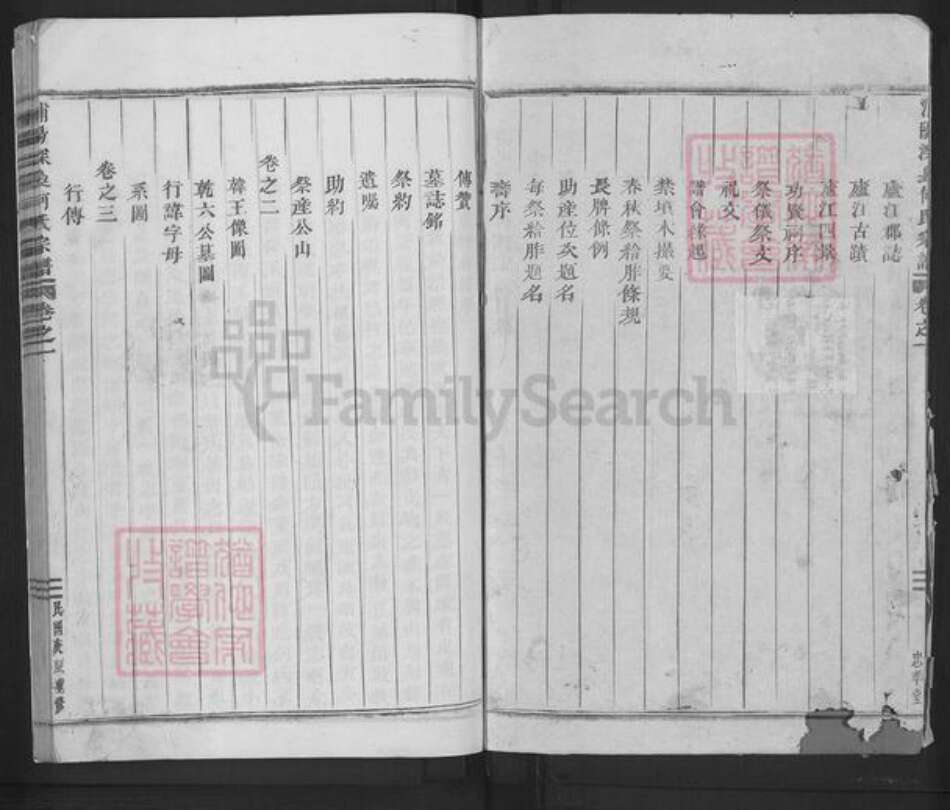 廬江郡誌
廬江古蹟
廬江四獻
功賢祠序
祭儀祭文
祀文
譜會緣起
禁墳木撮要
春秋祭給胙條規
長牌條例
助產位次題名
每祭給胙題名
壽序
忠孝堂
傳贊
墓誌銘
祭約
遺囑
助約
祭產公山
卷之二
韓王像圖
乾六公墓圖
行諱字母
系圖
卷之三
行傳
何氏宗譜
卷之一
民國庚重修
猶他家譜學會收藏
FamilySearch